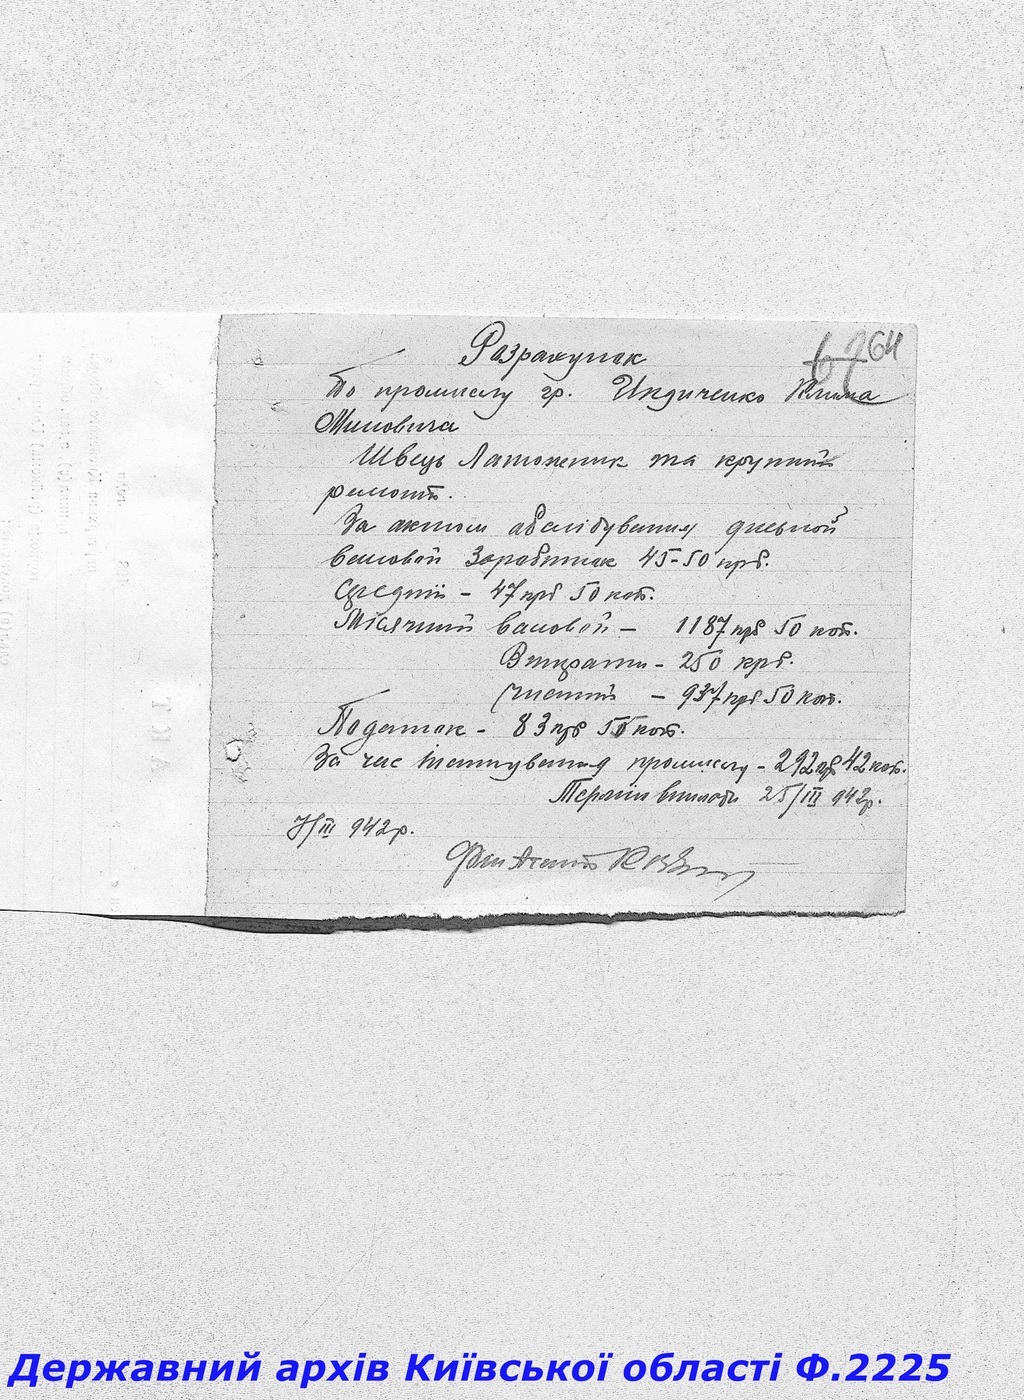 Розрахунок
64
По промислу гр. Индиченко Клима
Миновича
Швець Латошник та крупний
ремонт.
За актом обслідування дневной
валовой Заработок 45-50 крб.
Средній - 47 крб 50 коп.
Місячний валовой - 1187 крб 50 коп.
Витрати - 250 крб.
Чистий - 937 крб 50 коп.
Податок - 83 крб 55 коп.
За час існування промислу - 292 крб 42 коп.
Термін виплати 25/III 942 р.
7/III 942 р.
Фин Агент
Державний архів Київської області Ф.2225